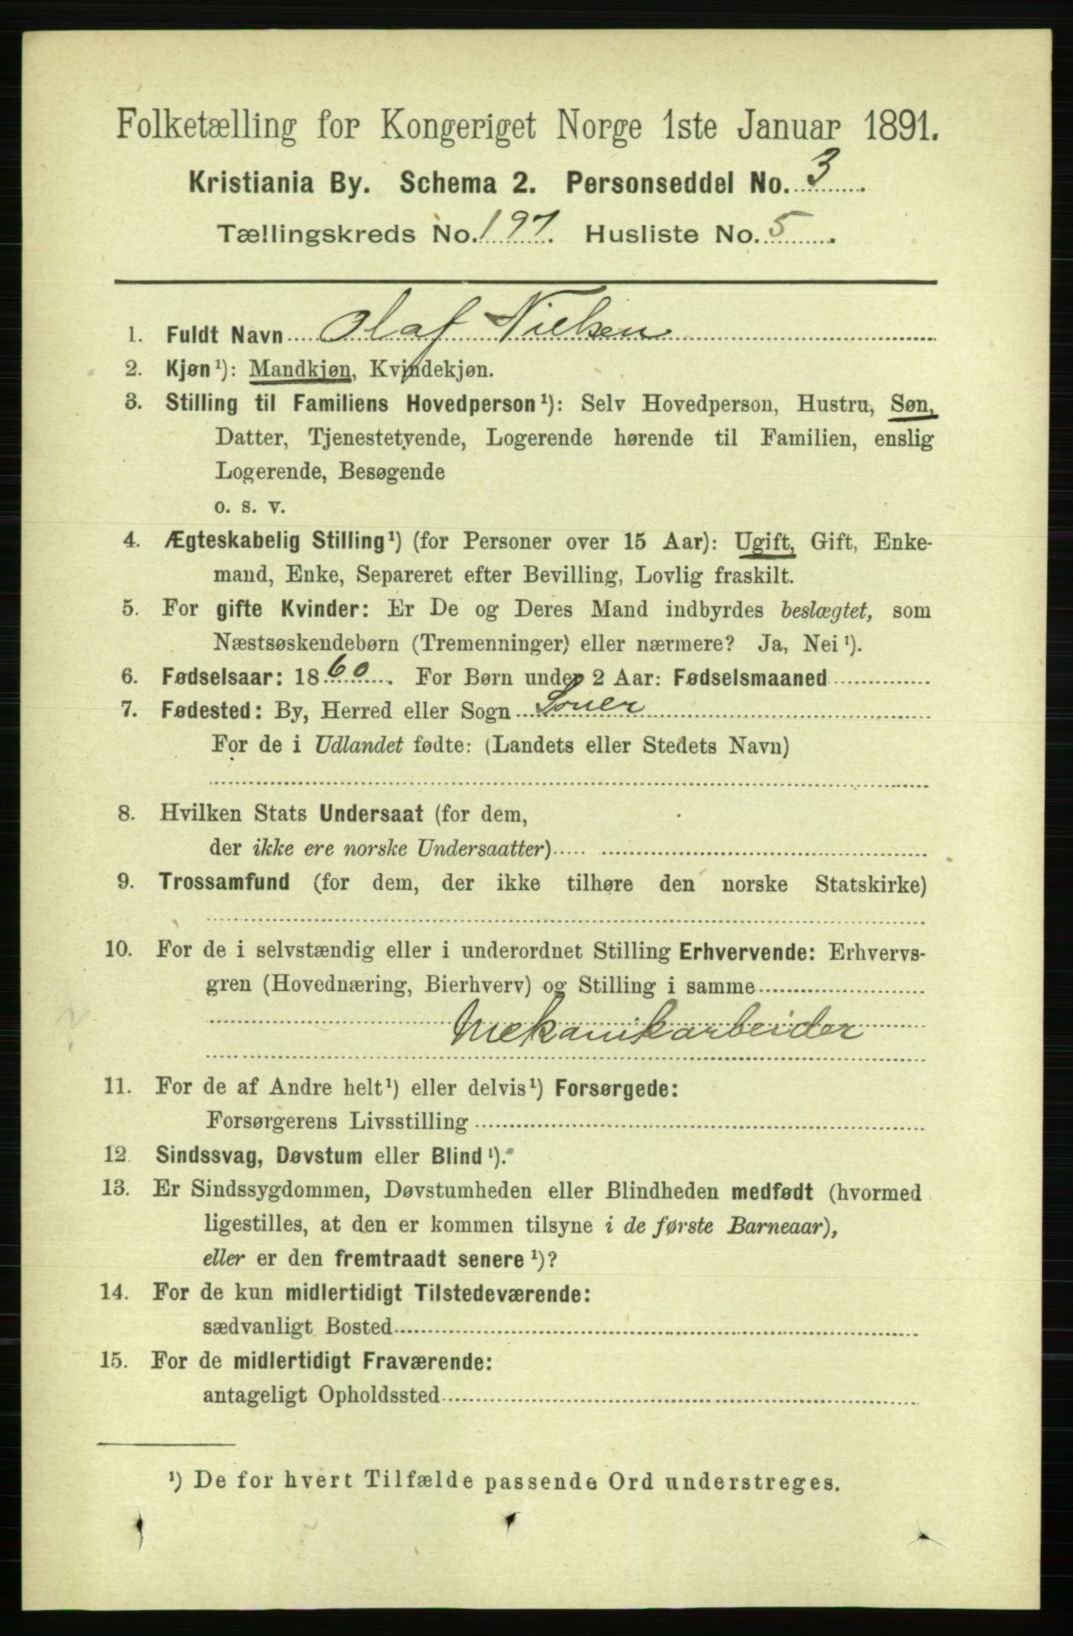 Folketælling for Kongeriget Norge 1ste Januar 1891.
Kristiania By. Schema 2. Personseddel No. 3.
Tællingskreds No. 197. Husliste No. 5.
1. Fuldt Navn Olaf Nielsen
2. Kjøn¹): Mandkjøn, Kvindekjøn.
3. Stilling til Familiens Hovedperson¹): Selv Hovedperson, Hustru, Søn,
Datter, Tjenestetyende, Logerende hørende til Familien, enslig
Logerende, Besøgende
o. s. v.
4. Ægteskabelig Stilling¹) (for Personer over 15 Aar): Ugift, Gift, Enke-
mand, Enke, Separeret efter Bevilling, Lovlig fraskilt.
5. For gifte Kvinder: Er De og Deres Mand indbyrdes beslægtet, som
Næstsøskendebørn (Tremenninger) eller nærmere? Ja, Nei¹).
6. Fødselsaar: 1860. For Børn under 2 Aar: Fødselsmaaned
7. Fødested: By, Herred eller Sogn
For de i Udlandet fødte: (Landets eller Stedets Navn)
8. Hvilken Stats Undersaat (for dem,
der ikke ere norske Undersaatter)
9. Trossamfund (for dem, der ikke tilhøre den norske Statskirke)
10. For de i selvstændig eller i underordnet Stilling Erhvervende: Erhvervs-
gren (Hovednæring, Bierhverv) og Stilling i samme
Mekanikarbeider
11. For de af Andre helt¹) eller delvis¹) Forsørgede:
Forsørgerens Livsstilling
12. Sindssvag, Døvstum eller Blind¹).
13. Er Sindssygdommen, Døvstumheden eller Blindheden medfødt (hvormed
ligestilles, at den er kommen tilsyne i de første Barneaar),
eller er den fremtraadt senere¹)?
14. For de kun midlertidigt Tilstedeværende:
sædvanligt Bosted
15. For de midlertidigt Fraværende:
antageligt Opholdssted
¹) De for hvert Tilfælde passende Ord understreges.